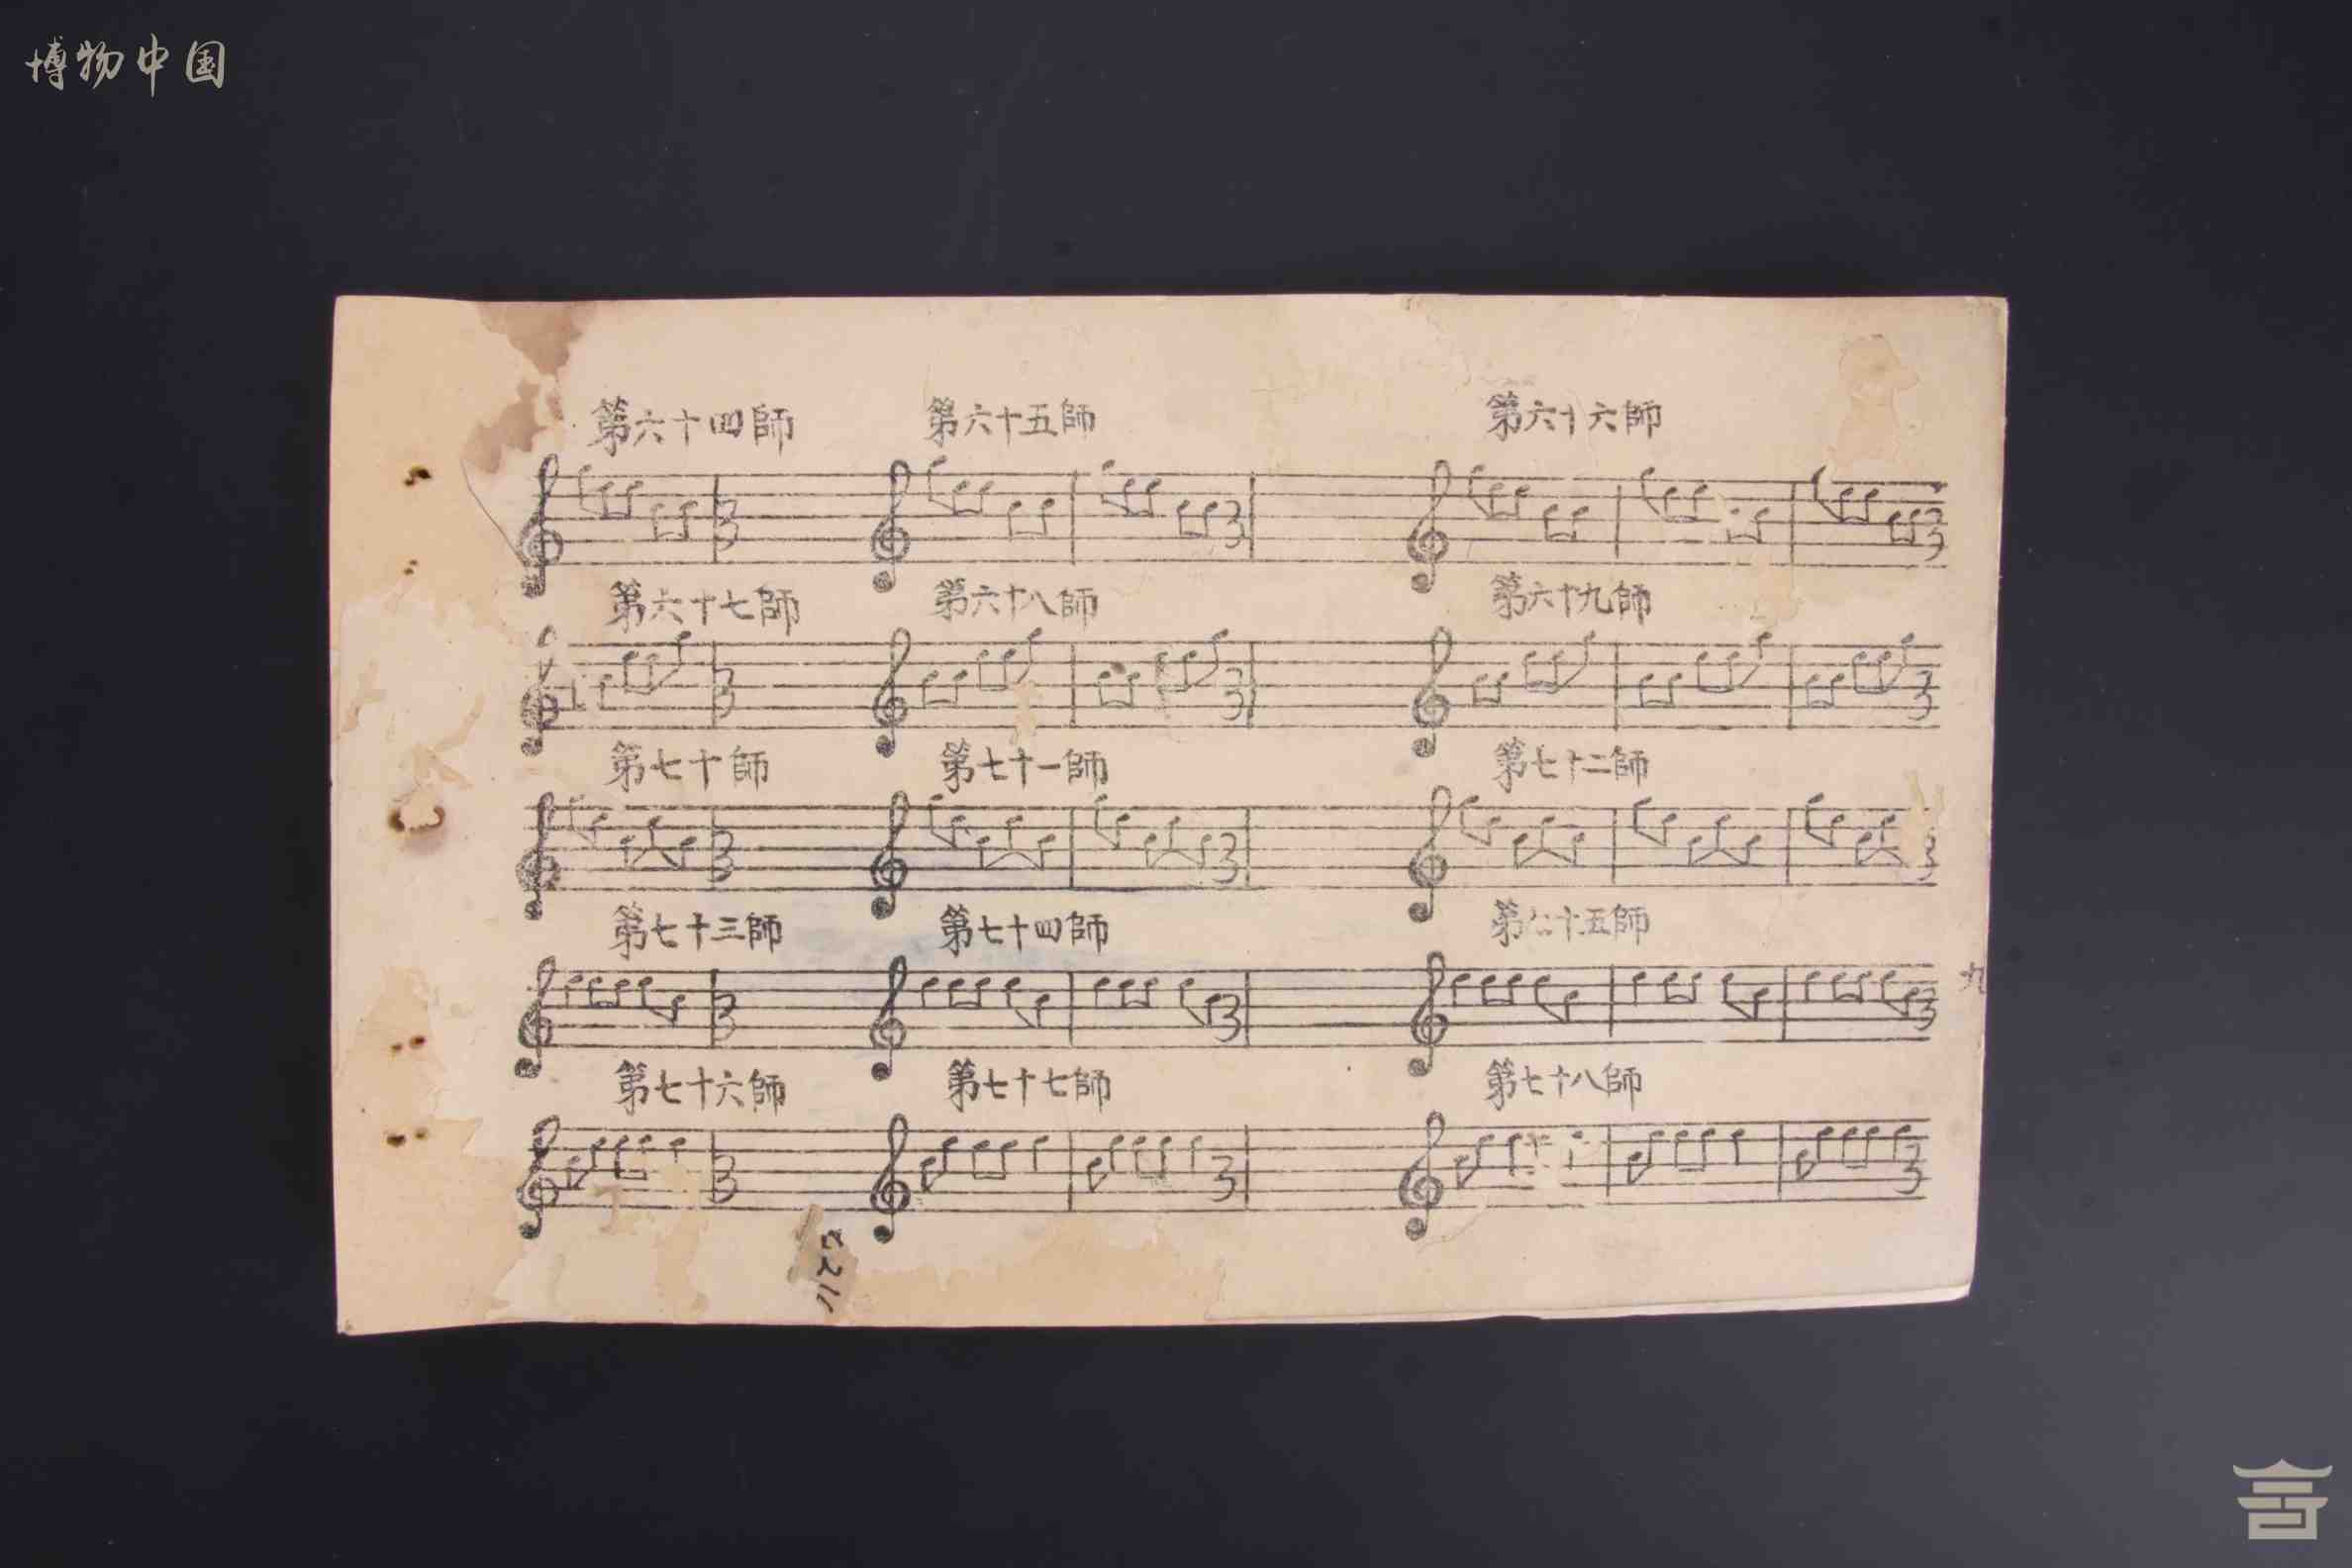 博物中国
第六十四師 第六十五師 第六十六師
第六十七師 第六十八師 第六十九師
第七十師 第七十一師 第七十二師
第七十三師 第七十四師 第七十五師
九
第七十六師 第七十七師 第七十八師